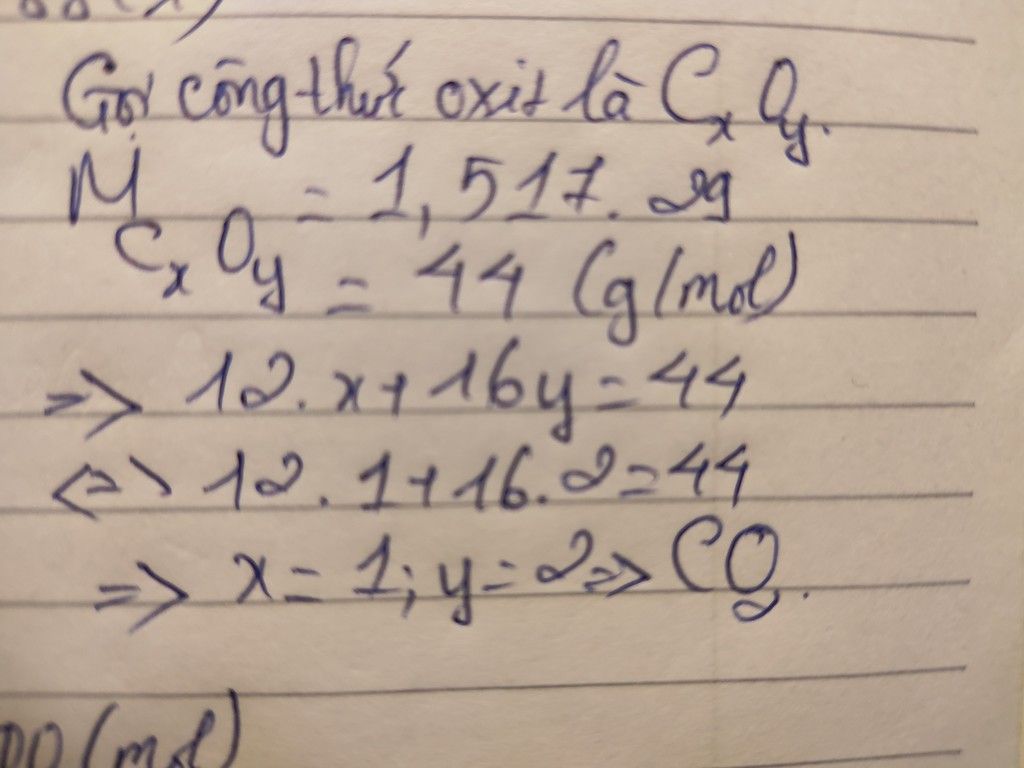 Gọi công thức oxit là CₓOᵧ.
M CₓOᵧ = 1,517. 29
= 44 (g/mol)
=> 12.x+16y=44
<=> 12.1+16.2=44
=> x=1; y=2=> CO₂.
00(mol)